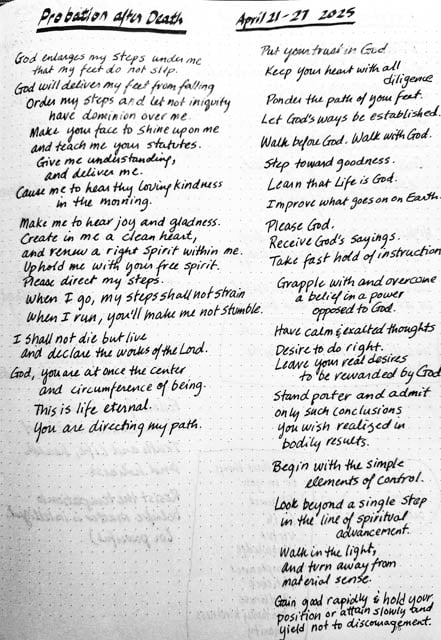 Probation after Death
April 21-27 2025
God enlarges my steps under me
that my feet do not slip.
God will deliver my feet from falling
Order my steps and let not iniquity
have dominion over me.
Make your face to shine upon me
and teach me your statutes.
Give me understanding,
and deliver me.
Cause me to hear thy loving kindness
in the morning.
Make me to hear joy and gladness.
Create in me a clean heart,
and renew a right spirit within me.
Uphold me with your free spirit.
Please direct my steps.
When I go, my steps shall not strain
When I run, you'll make me not stumble.
I shall not die but live
and declare the works of the Lord.
God, you are at once the center
and circumference of being.
This is life eternal.
You are directing my path.
Put your trust in God
Keep your heart with all
diligence
Ponder the path of your feet.
Let God's ways be established.
Walk before God. Walk with God.
Step toward goodness.
Learn that Life is God.
Improve what goes on on Earth.
Please God.
Receive God's sayings.
Take fast hold of instruction
Grapple with and overcome
a belief in a power
opposed to God.
Have calm & exalted thoughts
Desire to do right.
Leave your real desires
to be rewarded by God
Stand porter and admit
only such conclusions
you wish realized in
bodily results.
Begin with the simple
elements of control.
Look beyond a single step
in the line of spiritual
advancement.
Walk in the light,
and turn away from
material sense.
Gain good rapidly & hold your
position or attain slowly and
yield not to discouragement.